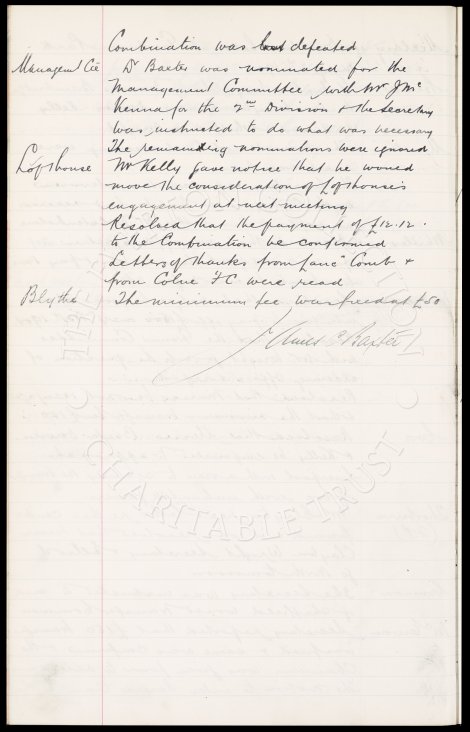 Combination was lost defeated
Management Cee Dr Baxter was nominated for the
Management Committee with Mr J Mc
Kenna for the 2nd Division & the Secretary
was instructed to do what was necessary
The remaining nominations were ignored
Lofthouse Mr Kelly gave notice that he would
move the consideration of Lofthouse's
engagement at next meeting
Resolved that the payment of £12.12.
to the Combination be confirmed
Letters of thanks from Lanc Comb &
from Colne F C were read
Blythe The minimum fee was fixed at £50
James C Baxter
CHARITABLE TRUST